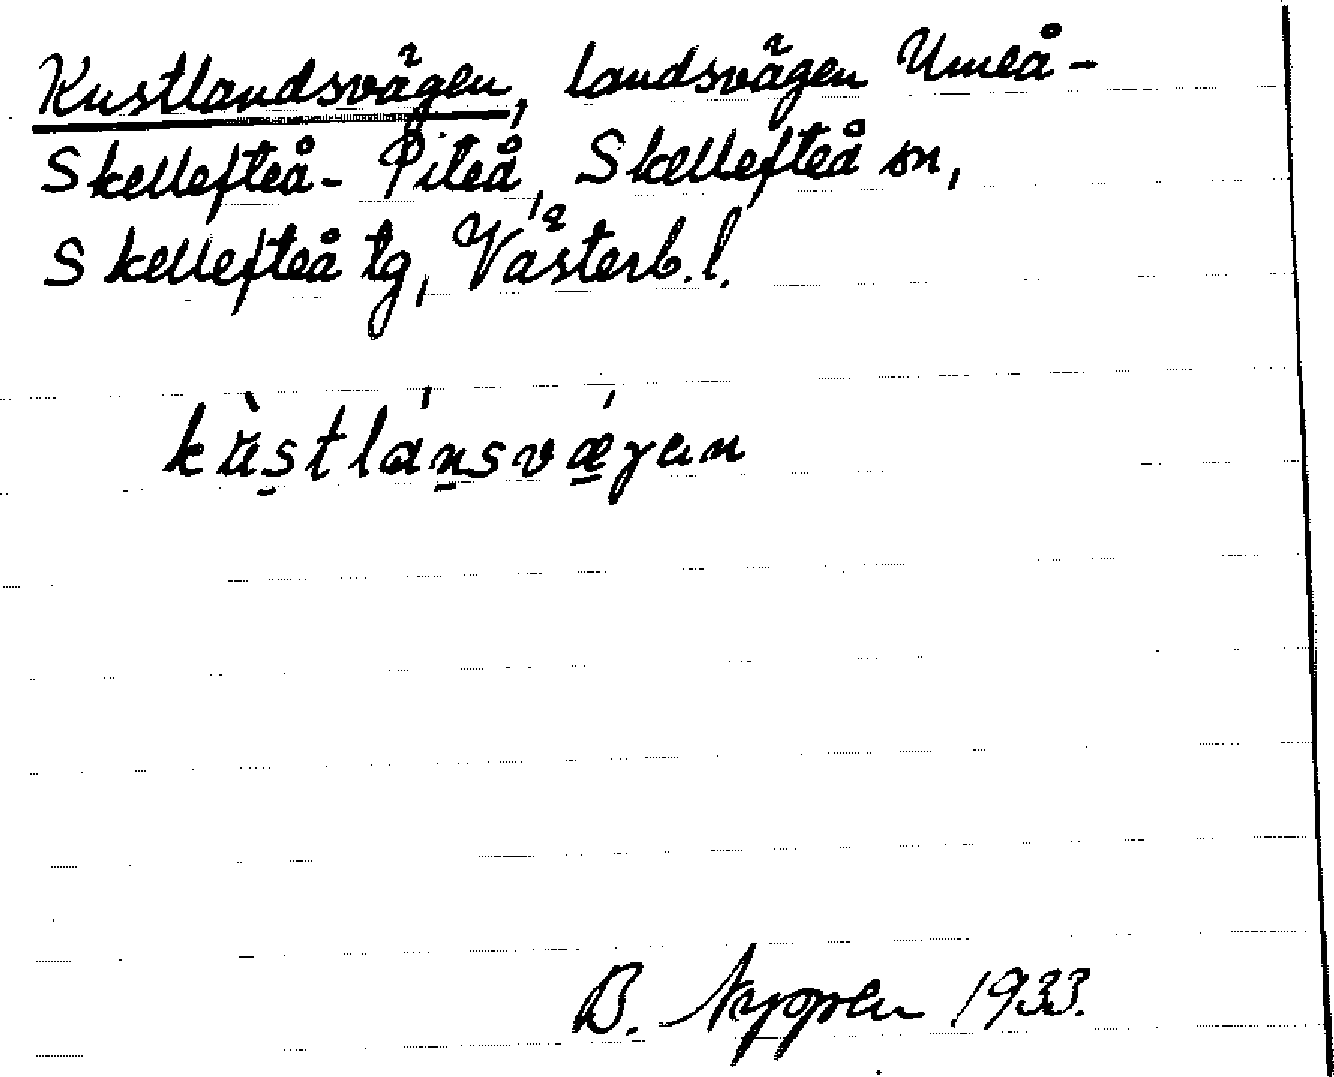 Kustlandsvägen, landsvägen Umeå-
Skellefteå- Piteå, Skellefteå sn,
Skellefteå tg, Västerb. l.
B. 1933.